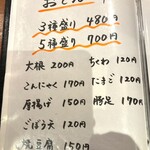 おでん
3種盛り 480円
5種盛り 700円
大根 200円 ちくわ 120円
こんにゃく 170円 たまご 120円
厚揚げ 150円 豚足 170円
ごぼう天 120円
焼豆腐 150円